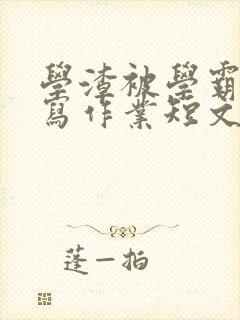 學渣被學霸
寫作業短文
蓬一拍